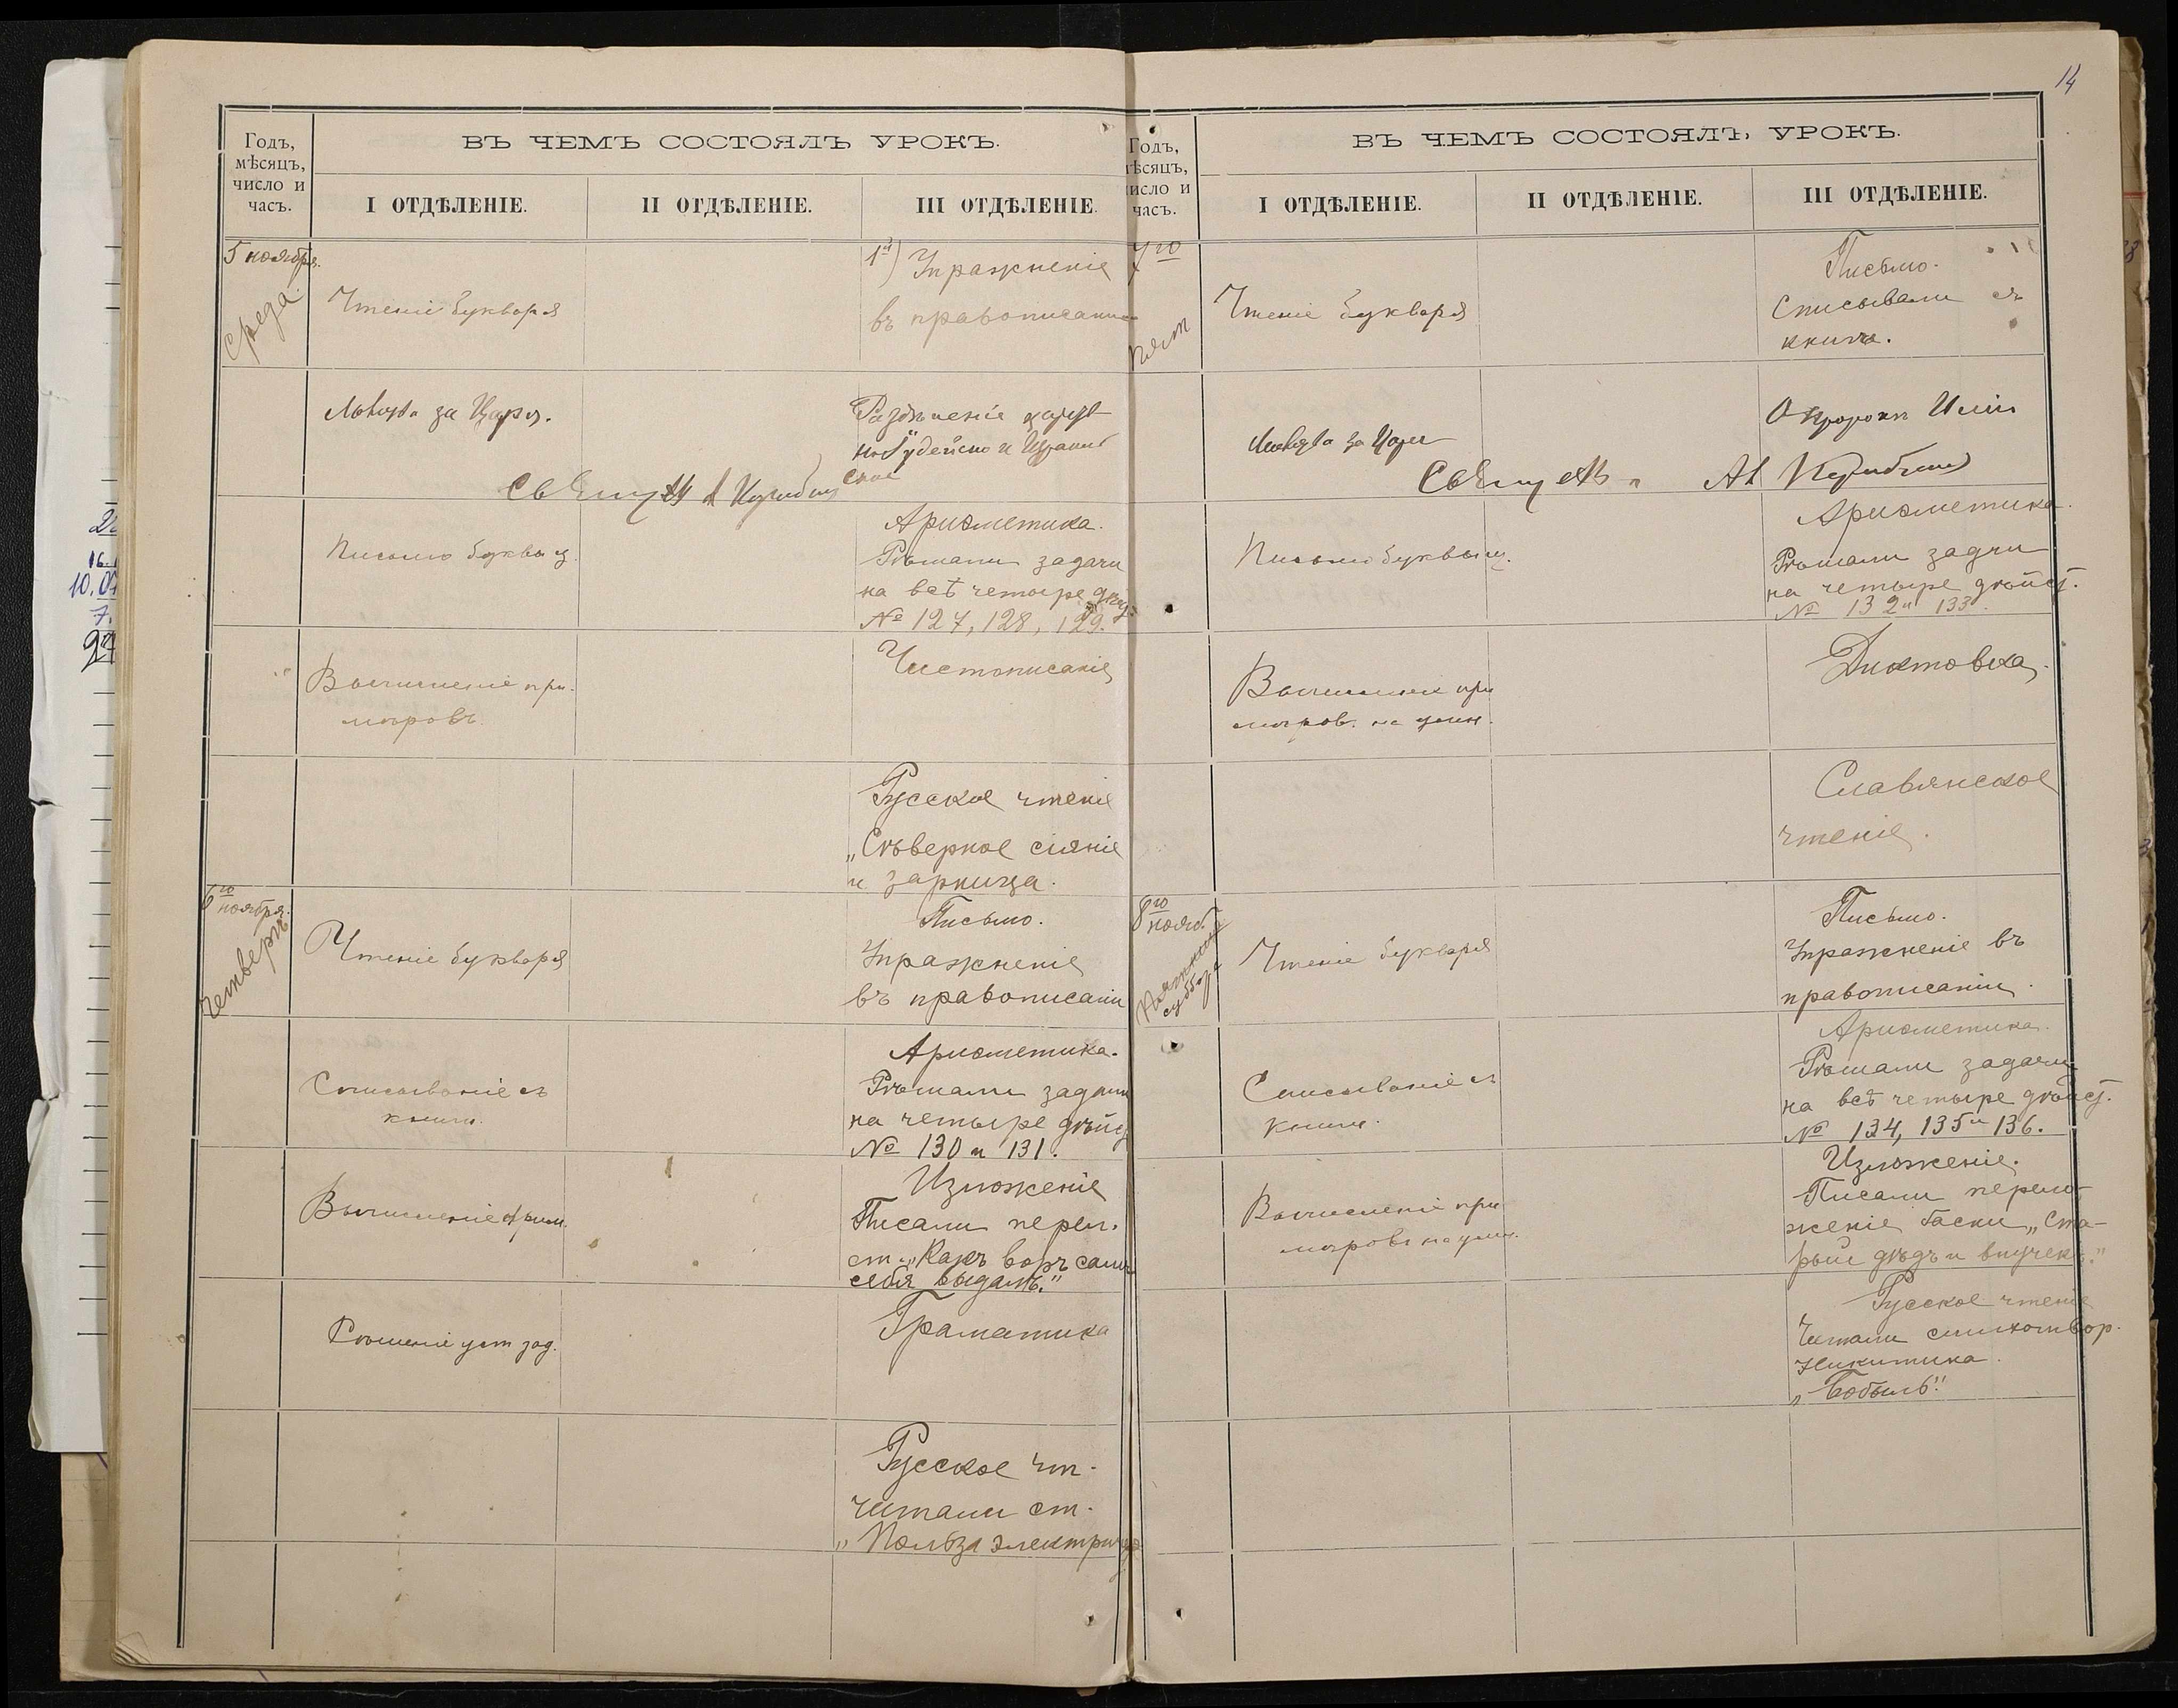 14
Годъ,
мѣсяцъ,
число и
часъ.
ВЪ ЧЕМЪ СОСТОЯЛЪ УРОКЪ.
I ОТДѢЛЕНІЕ.
II ОТДѢЛЕНІЕ.
III ОТДѢЛЕНІЕ.
5 ноября.
Среда.
Чтеніе букваря
1й) Упражненіе
въ правописаніи
Молитва за Царя.
Раздѣленіе царст
на Іудейско и Израил
ское
Священ А
Письмо буквы ц.
Ариѳметика.
Рѣшали задачи
на всѣ четыре дѣй.
№ 127, 128, 129.
Вычисленіе при-
мѣровъ.
Чистописаніе
Русское чтеніе
„Сѣверное сіяніе
и зарница.
6го ноября.
Четвергъ
Чтеніе букваря
Письмо.
Упражненіе
въ правописаніи
Списываніе съ
книги.
Ариѳметика.
Рѣшали задачи
на четыре дѣйс
№ 130 и 131.
Вычисленіе прим.
Изложеніе
Писали перел.
ст. „Какъ воръ самъ
себя выдалъ."
Рѣшеніе уст зад.
Граматика
Русское чт.
читали ст.
„Польза электрич
Годъ,
мѣсяцъ,
число и
часъ.
ВЪ ЧЕМЪ СОСТОЯЛЪ, УРОКЪ.
I ОТДѢЛЕНІЕ.
II ОТДѢЛЕНІЕ.
III ОТДѢЛЕНІЕ.
7го
Пят
Чтеніе букваря
Письмо.
Списывали съ
книги.
Молитва за Царя
О пророкѣ Иліи
Священ Ал
Письмо буквы ц.
Ариѳметика.
Рѣшали задачи
на четыре дѣйст.
№ 132 и 133.
Вычисленіе при
мѣров. на
Диктовка.
Славянское
чтеніе.
8го нояб.
суббота
Чтеніе букваря
Письмо.
Упражненіе въ
правописаніи.
Списываніе съ
книги.
Ариѳметика.
Рѣшали задачи
на всѣ четыре дѣйст.
№ 134, 135 и 136.
Вычисленіе при
мѣровъ на
Изложеніе.
Писали перело-
женіе басни „Ста-
рый дѣдъ и внучекъ."
Русское чтеніе
Читали стихотвор.
Никитина.
„Бобыль."